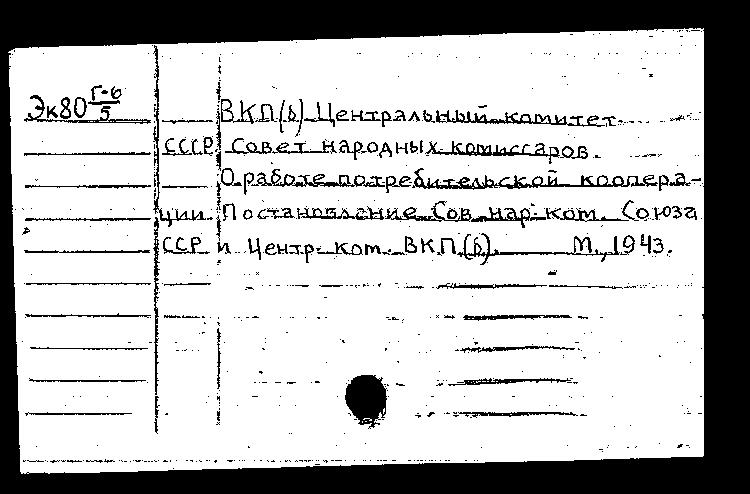 Эк80 Г-6/5
ВКП(б) Центральный комитет.
СССР. Совет народных комиссаров.
О работе потребительской коопера-
ции. Постановление Сов. нар. ком. Союза
ССР и Центр. ком. ВКП(б). М., 1943.